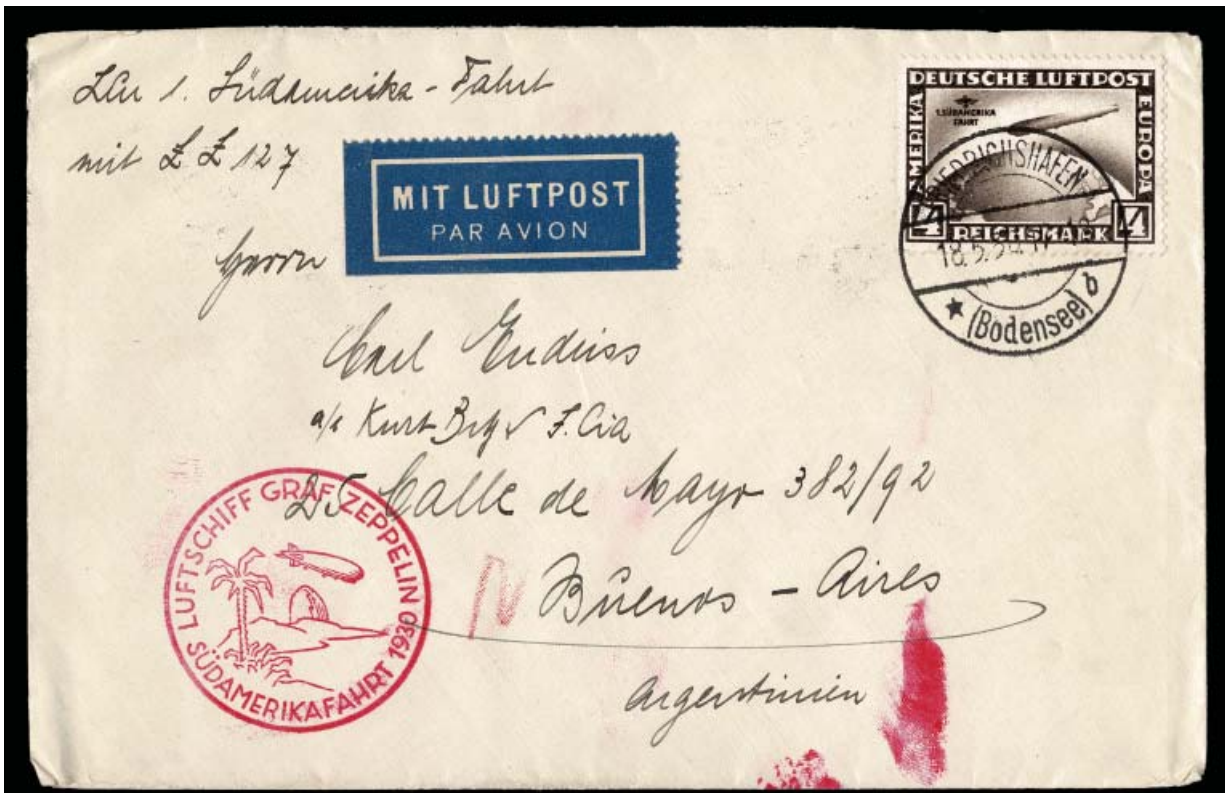 1. Südamerika-Fahrt
mit L Z 127
MIT LUFTPOST
PAR AVION
DEUTSCHE LUFTPOST
AMERIKA
EUROPA
1. SÜDAMERIKA
FAHRT
4 REICHSMARK 4
FRIEDRICHSHAFEN
18.5.30.
(Bodensee) b
Herrn
Carl Endriss
Kurt F. Cia
25 Calle de Mayo 382/92
Buenos - Aires
Argentinien
LUFTSCHIFF GRAF ZEPPELIN
SÜDAMERIKAFAHRT 1930